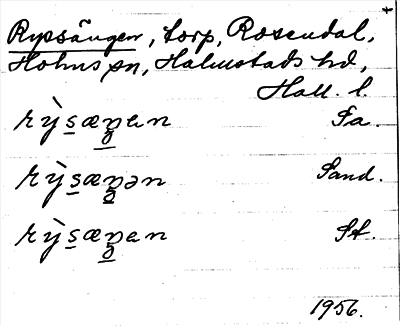 Rypsängen, torp, Rosendal,
Holms sn, Halmstads hd,
Hall. l.
rỳsæŋen Fa.
rỳsæŋən Sand.
rỳsæŋen St.
1956.